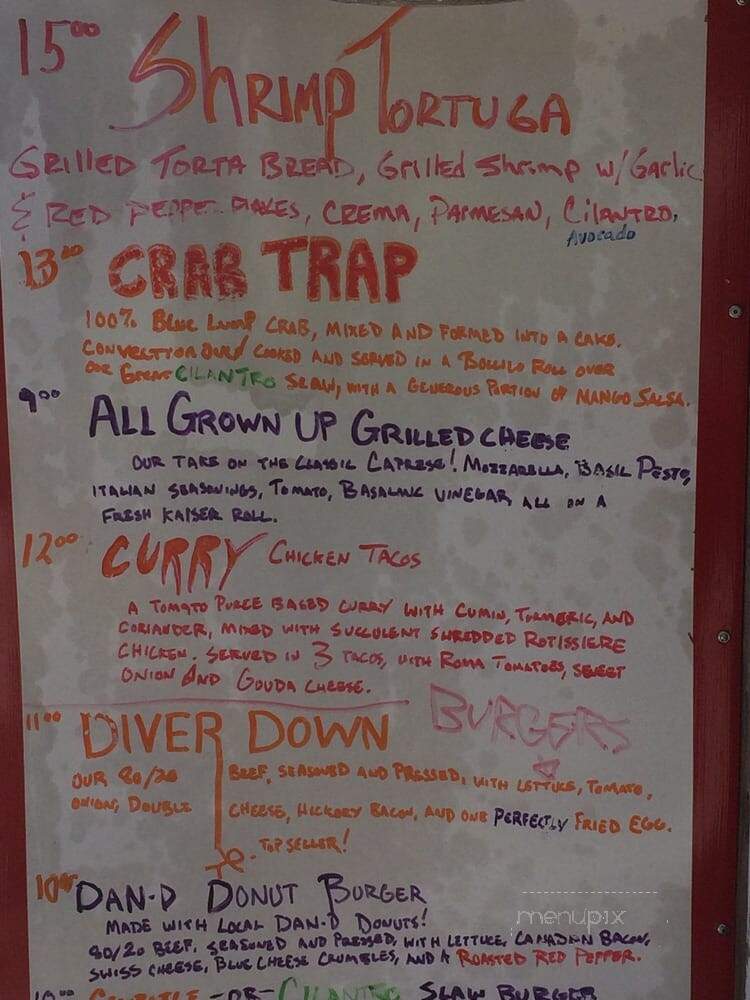 15⁰⁰ Shrimp Tortuga
Grilled Torta Bread, Grilled Shrimp w/ Garlic
& Red Peppe Flakes, Crema, Parmesan, Cilantro,
Avocado
13⁰⁰ CRAB TRAP
100% Blue Lump Crab, mixed and formed into a cake.
Convection oven cooked and served in a Bolillo Roll over
our Great Cilantro Slaw, with a generous portion of Mango Salsa.
9⁰⁰ All Grown Up Grilled Cheese
Our take on the classic Caprese! Mozzarella, Basil Pesto,
Italian seasonings, Tomato, Basalmic vinegar all on a
fresh Kaiser Roll.
12⁰⁰ CURRY Chicken Tacos
A Tomato Puree based curry with Cumin, Turmeric, and
Coriander, mixed with succulent shredded Rotissiere
Chicken. Served in 3 tacos, with Roma Tomatoes, sweet
onion and Gouda cheese.
BURGERS
11⁰⁰ DIVER DOWN
Our 80/20 Beef, seasoned and pressed, with lettuce, tomato,
onion, double cheese, hickory bacon, and one perfectly fried egg.
- Top Seller!
10⁰⁰ Dan-D Donut Burger
Made with local Dan-D Donuts!
80/20 Beef, seasoned and pressed, with lettuce, Canadian bacon,
Swiss cheese, blue cheese crumbles, and a roasted red pepper.
-or- Cilantro Slaw Burger
menupix